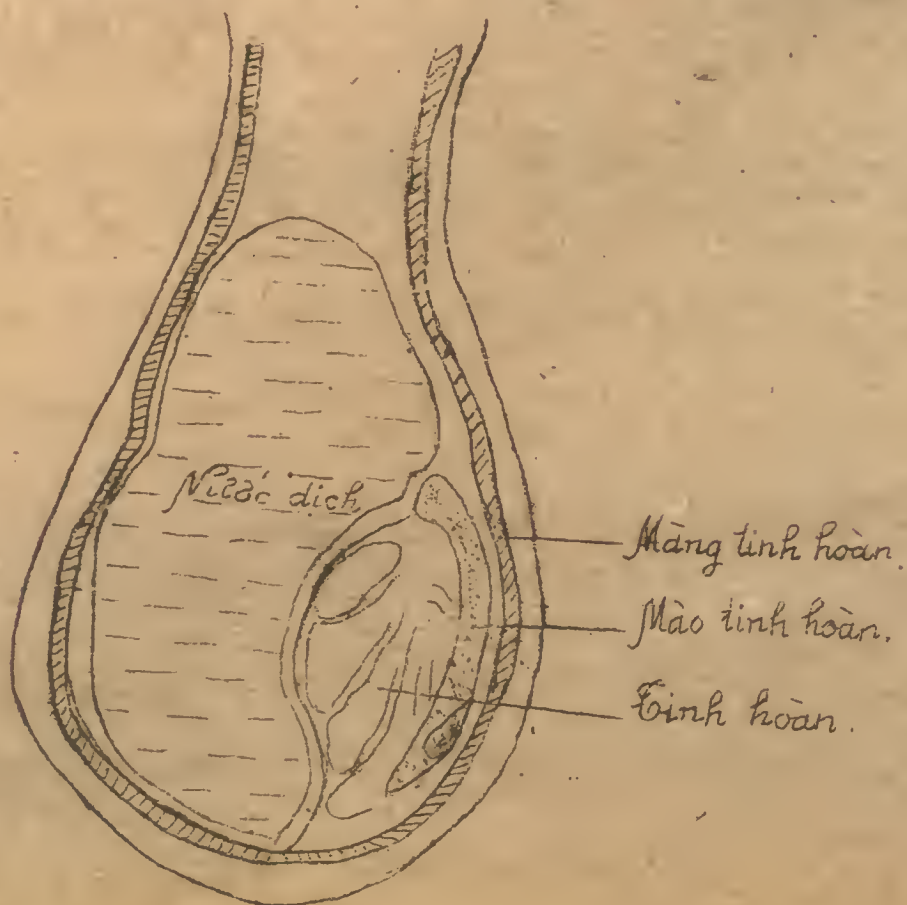 Nước dịch
Màng tinh hoàn.
Mào tinh hoàn.
Tinh hoàn.